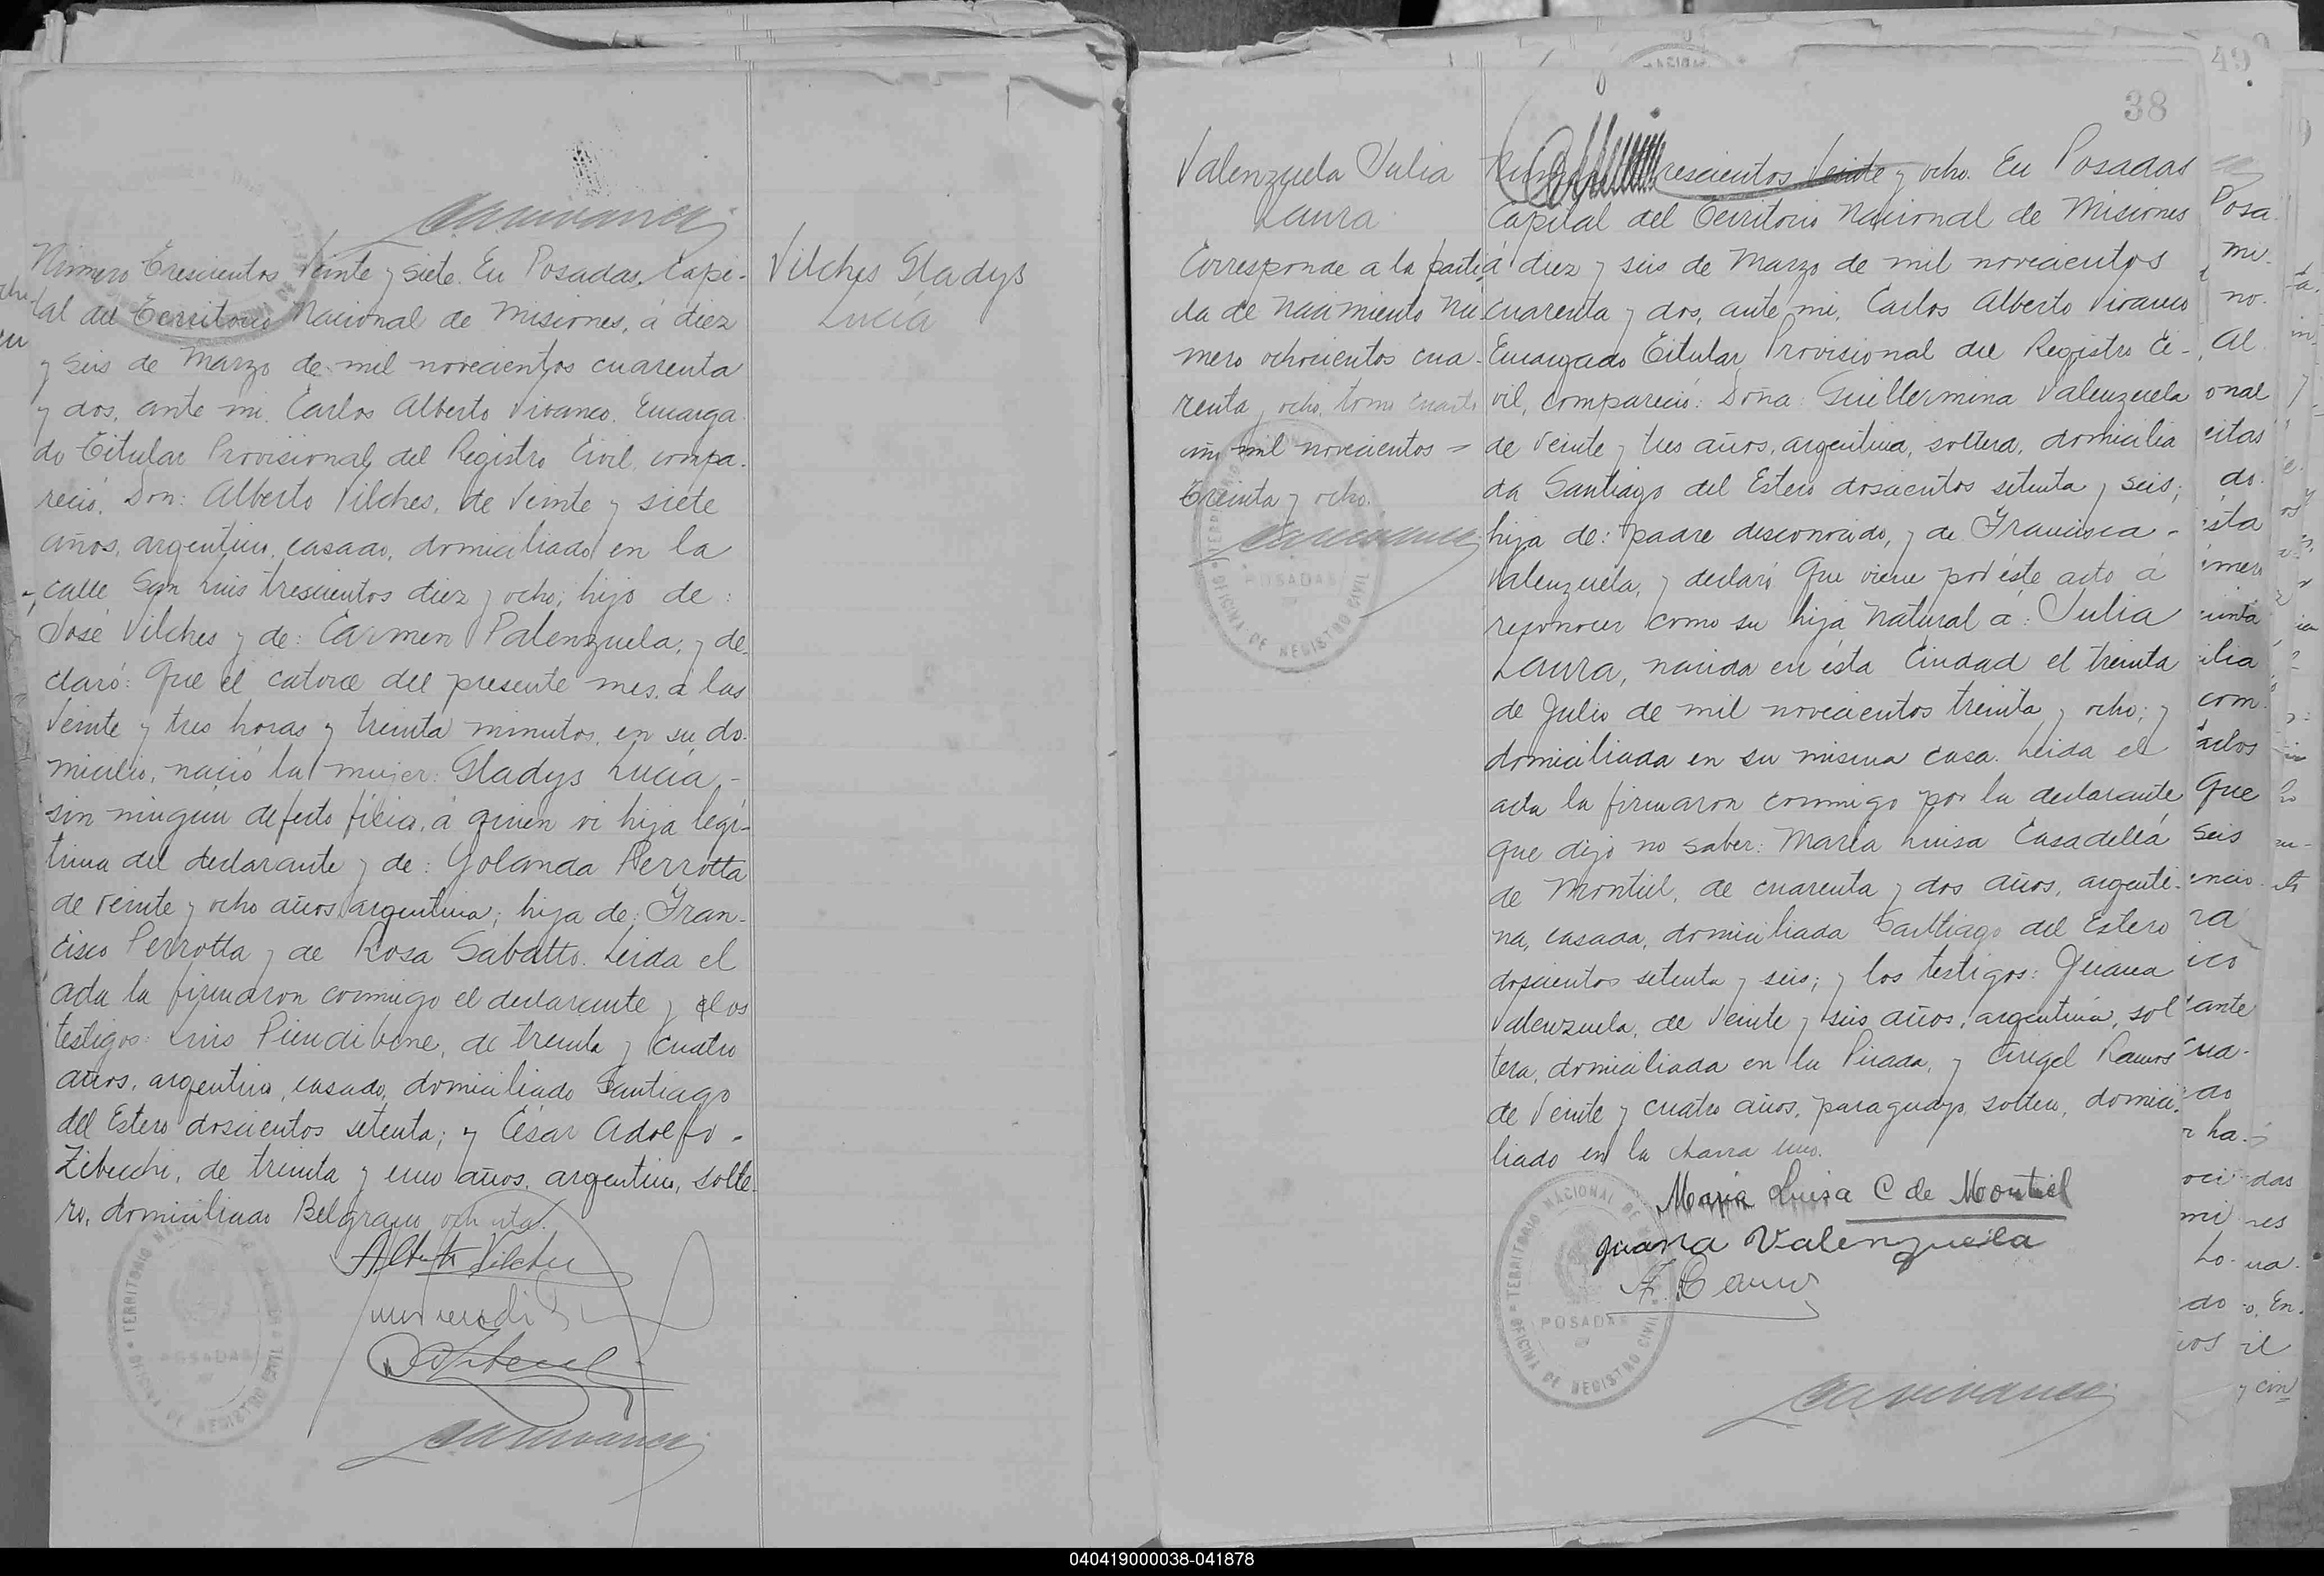 Número Trescientos Veinte y siete. En Posadas, Capi-
tal del Territorio Nacional de Misiones, á diez
y seis de Marzo de mil novecientos cuarenta
y dos, ante mi, Carlos Alberto Vivanco, Encarga
do Titular Provisional del Registro Civil, compa-
reció, Don: Alberto Vilches, de Veinte y siete
años, argentino, casado, domiciliado en la
calle San Luis trescientos diez y ocho, hijo de:
José Vilches y de: Carmen Palenzuela, y de-
claró: Que el catorce del presente mes, a las
Veinte y tres horas y treinta minutos, en su do-
micilio, nació la mujer: Gladys Lucía,-
sin ningun defecto físico, á quien vi hija legí-
tima del declarante y de: Yolanda Perrotta
de veinte y ocho años, argentina, hija de: Fran-
cisco Perrotta y de Rosa Sabatto. Leida el
acta la firmaron conmigo el declarante y los
testigos: Luis Piendibene, de treinta y cuatro
años, argentino, casado, domiciliado Santiago
del Estero doscientos setenta; y César Adolfo -
Zibecchi, de treinta y uno años, argentino, solte-
ro, domiciliado Belgrano ochenta.
Alberto Vilches
Vilches Gladys
Lucía
38
49
Valenzuela Julia
Laura
Corresponde a la parti-
da de Nacimiento Nú
mero ochocientos cua-
renta y ocho, tomo cuarto
año mil novecientos =
treinta y ocho.
Trescientos Veinte y ocho. En Posadas
Capital del Territorio Nacional de Misiones
á diez y seis de Marzo de mil novecientos
cuarenta y dos, ante mi, Carlos Alberto Vivanco
Encargado Titular Provisional del Registro Ci-
vil, compareció: Doña: Guillermina Valenzuela
de Veinte y tres años, argentina, soltera, domicilia
da Santiago del Estero doscientos setenta y seis,
hija de: padre desconocido, y de Francisca -
Valenzuela, y declaró: Que viene por éste acto á
reconocer como su hija natural á: Julia
Laura, nacida en ésta Ciudad el treinta
de Julio de mil novecientos treinta y ocho; y
domiciliada en su misma casa. Leida el
acta la firmaron conmigo por la declarante
que dijo no saber: María Luisa Casadellá
de Montiel, de cuarenta y dos años, argenti-
na, casada, domiciliada Santiago del Estero
doscientos setenta y seis; y los testigos: Juana
Valenzuela, de Veinte y seis años, argentina, sol
tera, domiciliada en la Picada, y Angel Ramos
de Veinte y cuatro años, paraguayo, soltero, domici-
liado en la chacra uno.
María Luisa C de Montiel
Juana Valenzuela
TERRITORIO NACIONAL DE
POSADAS
OFICINA DE REGISTRO CIVIL
040419000038-041878